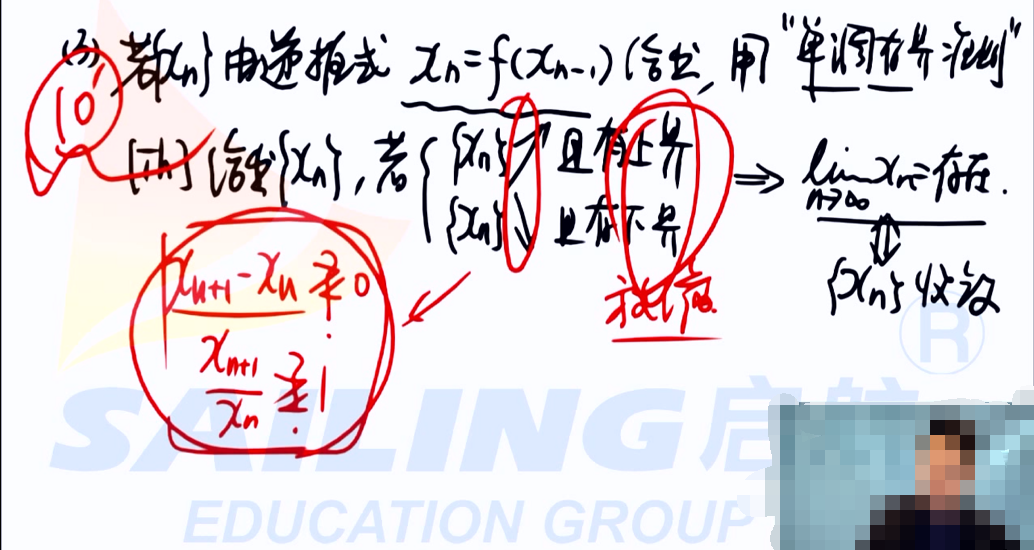 (3) 若{xn}由递推式 xn=f(xn-1)给出,用"单调有界准则"
10'
[注]给出{xn},若{ {xn}↗且有上界
{xn}↘且有下界
⇒ lim n→∞ xn=存在.
⇕
{xn}收敛
xn+1-xn ≷ 0
?
xn+1/xn ≷ 1
?
放缩.
SAILING启航®
EDUCATION GROUP